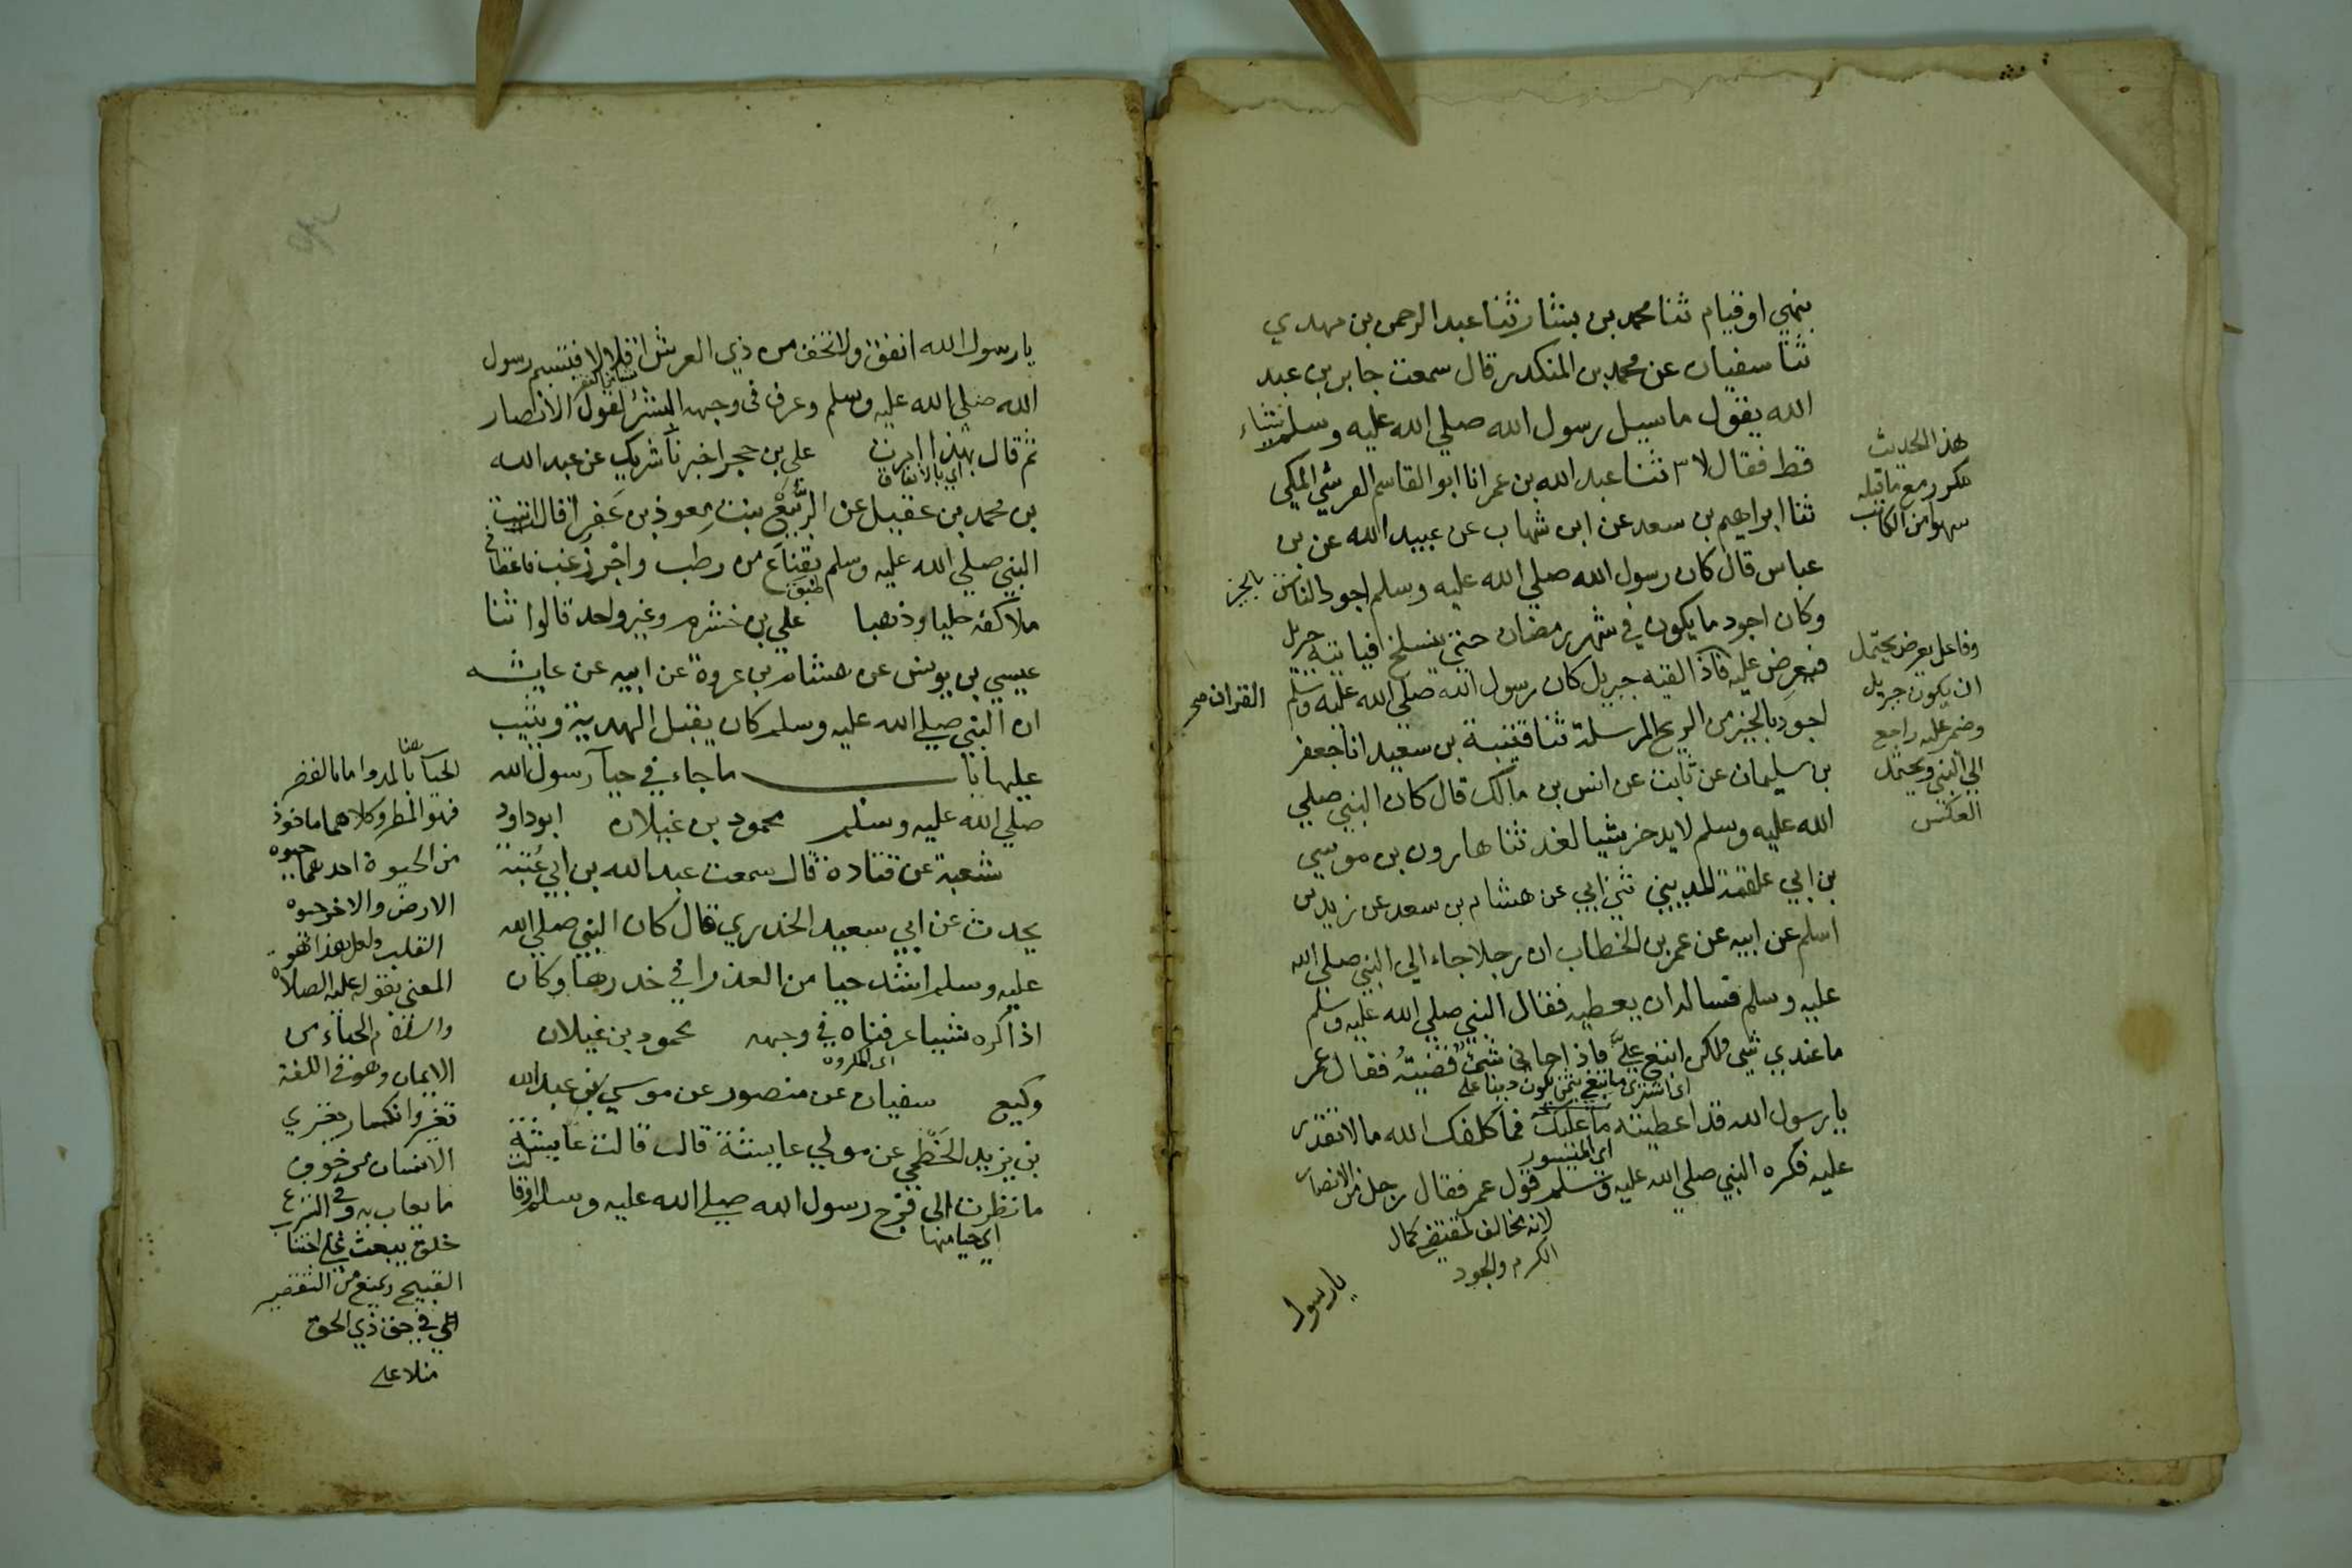 بنهي او قيام ثنا محمد بن بشار ثنا عبد الرحمن بن مهدي
ثنا سفيان عن محمد بن المنكدر قال سمعت جابر بن عبد
الله يقول ما سيل رسول الله صلي الله عليه وسلم شياء
قط فقال لا ثنا عبد الله بن عمر انا ابو القاسم القرشي المكي
ثنا ابراهيم بن سعد عن ابن شهاب عن عبيد الله عن بن
عباس قال كان رسول الله صلي الله عليه وسلم اجود الناس بالخير
وكان اجود ما يكون في شهر رمضان حتي ينسلخ فياتيه جبريل
فيعرض عليه القران صح فاذا لقيه جبريل كان رسول الله صلي الله عليه وسلم
اجود بالخير من الريح المرسلة ثنا قتيبة بن سعيد انا جعفر
بن سليمان عن ثابت عن انس بن مالك قال كان النبي صلي
الله عليه وسلم لا يدخر شيا لغد ثنا هارون بن موسي
بن ابي علقمة المديني ثني ابي عن هشام بن سعد عن زيد بن
اسلم عن ابيه عن عمر بن الخطاب ان رجلا جاء الي النبي صلي الله
عليه وسلم فساله ان يعطيه فقال النبي صلي الله عليه وسلم
ما عندي شي ولكن ابتع عليّ فاذا جاني شئ قضيته فقال عمر
اي اشتري ما تبغي بثمن يكون دينا علي
يا رسول الله قد اعطيته ما عليك فما كلفك الله ما لا تقدر
اي الميسور
عليه فكره النبي صلي الله عليه وسلم قول عمر فقال رجل من الانصار
لانه مخالف لمقتضي كمال
الكرم والجود
يا رسول
هذا الحديث
مكرر مع ما قبله
سهوا من الكاتب
وفاعل يعرض يحتمل
ان يكون جبريل
وضمر عليه راجع
الي النبي ويحتمل
العكس
يا رسول الله انفق ولا تخف من ذي العرش اقلالا فتبسم رسول
الله صلي الله عليه وسلم وعرف في وجهه البشر لقول الانصار
ثم قال بهذا امرت علي بن حجر اخبرنا شريك عن عبد الله
اي بالانفاق
بن محمد بن عقيل عن الربيع بنت معوذ بن عفرا قال اتيت
النبي صلي الله عليه وسلم بقناع من رطب واجر زغب فاعطاني
طبق
ملا كفه حليا وذهبا علي بن خشرم وغير واحد قالوا ثنا
عيسي بن يونس عن هشام بن عروة عن ابيه عن عايشه
ان النبي صلي الله عليه وسلم كان يقبل الهدية ويثيب
عليها باب ما جاء في حيآ رسول الله
صلي الله عليه وسلم محمود بن غيلان ابو داود
شعبة عن قتادة قال سمعت عبد الله بن ابي عتبة
يحدث عن ابي سعيد الخدري قال كان النبي صلي الله
عليه وسلم اشد حيا من العذرا في خدرها وكان
اذا كره شييا عرفناه في وجهه محمود بن غيلان
اي المكروه
وكيع سفيان عن منصور عن موسي بن عبد الله
بن يزيد الخطمي عن مولي عايشة قالت قالت عايشة
ما نظرت الي فرج رسول الله صلي الله عليه وسلم او قالت
اي حيا منها
الحيآ هنا بالمد واما بالقصر
فهو المطر وكلاهما ماخوذ
من الحيوة احدهما حيوة
الارض والاخر حيوة
القلب ولعل هذا هو
المعني بقوله عليه الصلاة
والسلام الحياء من
الايمان وهو في اللغة
تغير وانكسار يعتري
الانسان من خوف
ما يعاب به وفي الشرع
خلق يبعث علي اجتناب
القبيح ويمنع من التقصير
في حق ذي الحق
منلا علي